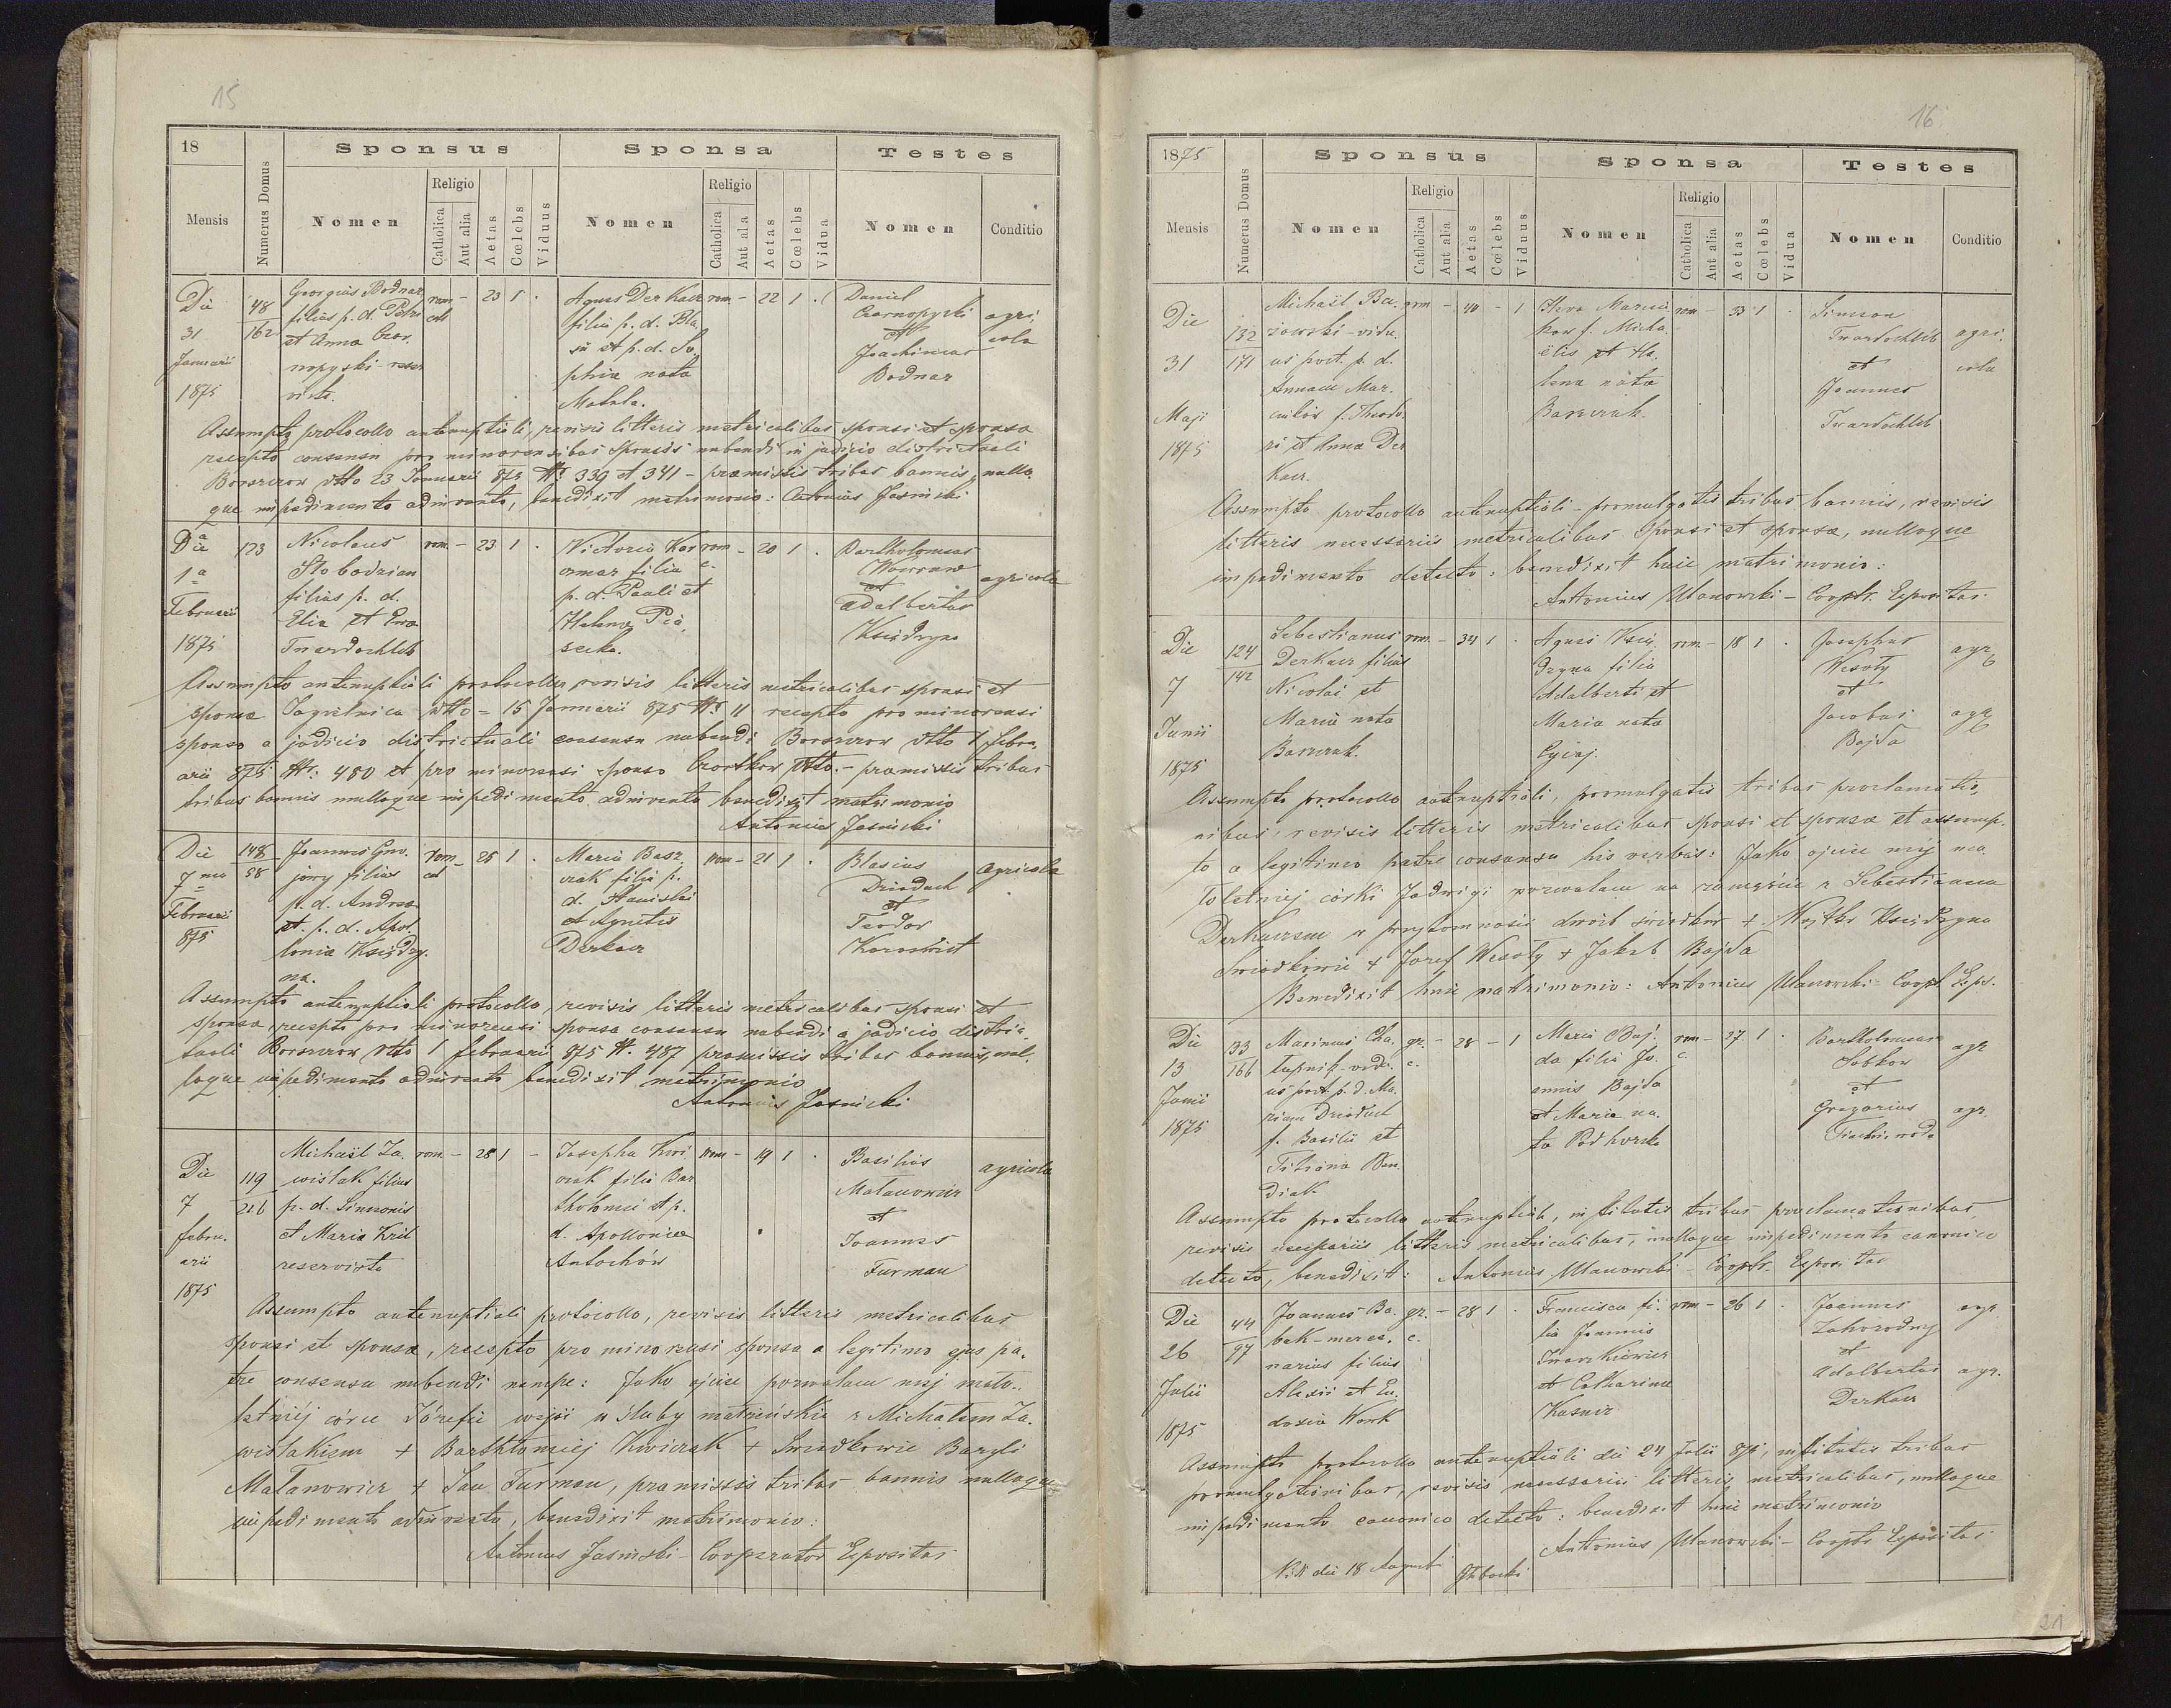 15
18
Sponsus
Sponsa
Testes
Mensis
Numerus Domus
Nomen
Religio
Catholica
Aut alia
Aetas
Cœlebs
Viduus
Nomen
Religio
Catholica
Aut alia
Aetas
Cœlebs
Vidua
Nomen
Conditio
Die
31
Januarii
1875
48
162
Georgius Bodnar
filius p. d. Petri
et Anna Czar.
nopyski reser
vista.
rom
cath
- 23 1 .
Agnes Derkacz
filia p. d. Bla
sii et p. d. So
phia nata
Matula.
rom - 22 1 .
Daniel
Czarnopyski
et
Joachimus
Bodnar
agri,
cola
Assumpto protocollo antenuptiali, revisis litteris metricalibus sponsi et sponsa
recepto consensu pro minorensibus sponsis nubendi in judicio districtuali
Borszczow dtto 23 Januarii 875 N. 339 et 341 - praemissis tribus bannis, nullo
que impedimento adinvento, benedixit matrimonio: Antonius Jasinski
Die
1a
Februarii
1875
123
Nicolaus
Slobodzian
filius p. d.
Elia et Eva
Twardochleb
rom. - 23 1 .
Victoria Kar
czmar filia
p. d. Pauli et
Helena Pia,
secka.
rom - 20 1 .
c.
Bartholomeus
et
Adalbertus
Księdzyna
agricola
Assumpto antenuptiali protocollo, revisis litteris metricalibus sponsi et
sponsa Jagielnica dtto = 15 Januarii 875 N. 11 recepto pro minorensi
sponso a judicio districtuali consensu nubendi Borszczow dtto 1 febru,
arii 875 N. 480 et pro minorensi sponso Czortkow dtto. - praemissis tribus
tribus bannis nulloque impedimento adinvento benedixit matrimonio
Antonius Jasinski
Die
7ma
Februarii
875
148
58
Joannes Gno.
jowy filius
p. d. Andrea
et. p. d. Apol.
lonia Księdzy.
na.
rom - 25 1 .
cat
Maria Basz
czak filia p.
d. Stanislai
et Agnetis
Derkacz
rom - 21 1 .
Blasius
Dziaduch
et
Teodor
agricola
Assumpto antenuptiali protocollo, revisis litteris metricalibus sponsi et
sponsa, recepto pro minorensi sponsa consensu nubendi a judicio distri,
tuali Borszczow dtto 1 februarii 875 N. 487 praemissis tribus bannis, nul,
loque impedimento adinvento benedixit matrimonio
Antonius Jasinski
Die
7
febru.
arii
1875
119
216
Michaël Za.
wiślak filius
p. d. Simeonis
et Maria Kril
reservista
rom. - 28 1 -
Josepha Kwi
czak filia Bar
tholomei et p.
d. Apollonia
Antochów
rom - 19 1 .
Basilius
Matanowicz
et
Joannes
Furman
agricola
Assumpto antenuptiali protocollo, revisis litteris metricalibus
sponsi et sponsa, recepto pro minorensi sponsa a legitimo ejus pa,
tre consensu nubendi nempe: Jako ojciec pozwalam mej mało,,
letniéj córce Józefie wejść w śluby małżeńskie z Michałem Za.
wiślakiem + Barthłomiej Kwiczak + Swiadkowie Bazyli
Matanowicz + Jan Furman, praemissis tribus bannis nulloque
impedimento adinvento, benedixit matrimonio:
Antonius Jasinski - Cooperator Expositus
16
1875
Sponsus
Sponsa
Testes
Mensis
Numerus Domus
Nomen
Religio
Catholica
Aut alia
Aetas
Cœlebs
Viduus
Nomen
Religio
Catholica
Aut alia
Aetas
Cœlebs
Vidua
Nomen
Conditio
Die
31
Maji
1875
132
171
Michaël Ba.
żowski - vidu.
us post. p. d.
Annam Mar.
cinków f. Theodo.
ri et Anna Der
kacz.
rom - 40 - 1
Marcin
kow f. Micha.
ëlis et He.
lena nata
Baszczak.
rom - 33 1 .
Simeon
Twardochleb
et
Joannes
Twardochleb
agri.
cola
Assumpto protocollo antenuptiali - promulgatis tribus bannis, revisis
litteris necessariis metricalibus sponsi et sponsa, nulloque
impedimento detecto, benedixit huic matrimonio:
Antonius Ulanowski - Cooptr. Expositus.
Die
7
Junii
1875
124
142
Sebestianus
Derkacz filius
Nicolai et
Maria nata
Baszczak.
rom. - 34 1 .
Agnes Księ,
dzyna filia
Adalberti et
Maria nata
Cyiaj.
rom - 18 1 .
Josephus
Wesoły
et
Jacobus
Bajda
agr
agr
Assumpto protocollo antenuptiali, promulgatis tribus proclamatio,
nibus, revisis litteris metricalibus sponsi et sponsa et assump.
to a legitimo patre consensu his verbis: Jako ojciec mej ma
łoletniej córki Jadwigi pozwalam na zamęście z Sebestianem
Derkaczem w przytomności dwóch świadków + Wojtko Księdzyna
Swiadkowie + Jozef Wesoły + Jakob Bajda
Benedixit huic matrimonio: Antonius Ulanowski - Coopt. Exps.
Die
13
Junii
1875
33
166
Maximus Cha.
łupnik - vidu.
us post. p. d. Ma.
riam Dziaduch
f. Basilii et
Titiana Ben.
diak
gr. - 28 - 1
c.
Maria Baj.
da filia Jo.
annis Bajda
et Maria na.
ta Podhorska
rom - 27 1 .
c.
Bartholomeus
Sobkow
et
Gregorius
agr
agr.
Assumpto protocollo antenuptiali, institutis tribus proclamationibus,
revisis necessariis litteris metricalibus, nulloque impedimento canonico
detecto, benedixit: Antonius Ulanowski - Cooptr. Expositus
Die
26
Julii
1875
44
97
Joannes Ba.
bak - merce.
narius filius
Alexii et Eu.
doxia Wowk
gr. - 28 1 .
c.
Francisca fi.
lia Joannis
Iwaszkiewicz
et Catharina
Kusnir
rom - 26 1 .
Joannes
Zahorodny
et
Adalbertus
Derkacz
agr
agr.
Assumpto protocollo antenuptiali die 24 Julii 875, institutis tribus
promulgationibus, revisis necessariis litteris metricalibus, nulloque
impedimento canonico detecto: benedixit huic matrimonio
Antonius Ulanowski - Cooptr Expositus
Vidi die 18 Augusti
21